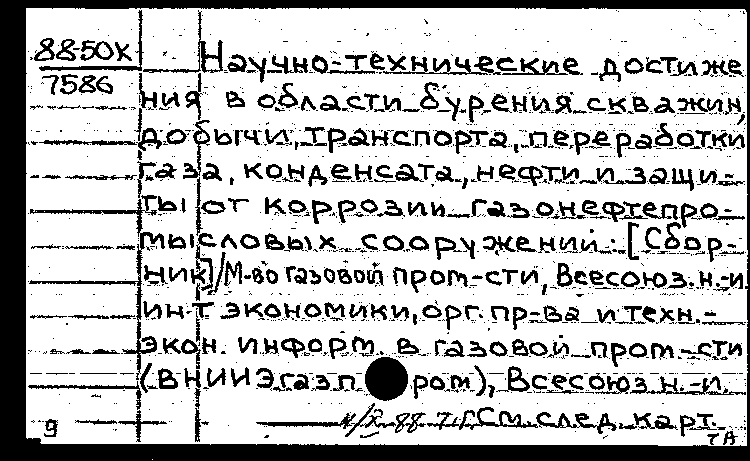 88-50К
7586
Научно-технические достиже
ния в области бурения скважин,
добычи, транспорта, переработки
газа, конденсата, нефти и защи-
ты от коррозии газонефтепро-
мысловых сооружений: [Сбор-
ник]/М-во газовой пром-сти, Всесоюз.н.-и.
ин-т экономики, орг. пр-ва и техн.-
экон. информ. в газовой пром-сти
(ВНИИЭгазпром), Всесоюз н.-и.
См. след. карт.
9
ТА